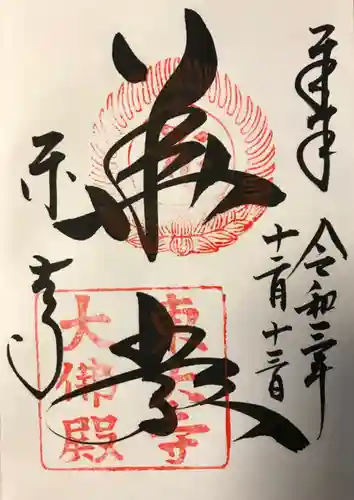 奉拝
令和三年
十二月十三日
華嚴
東大寺
東大寺
大佛殿